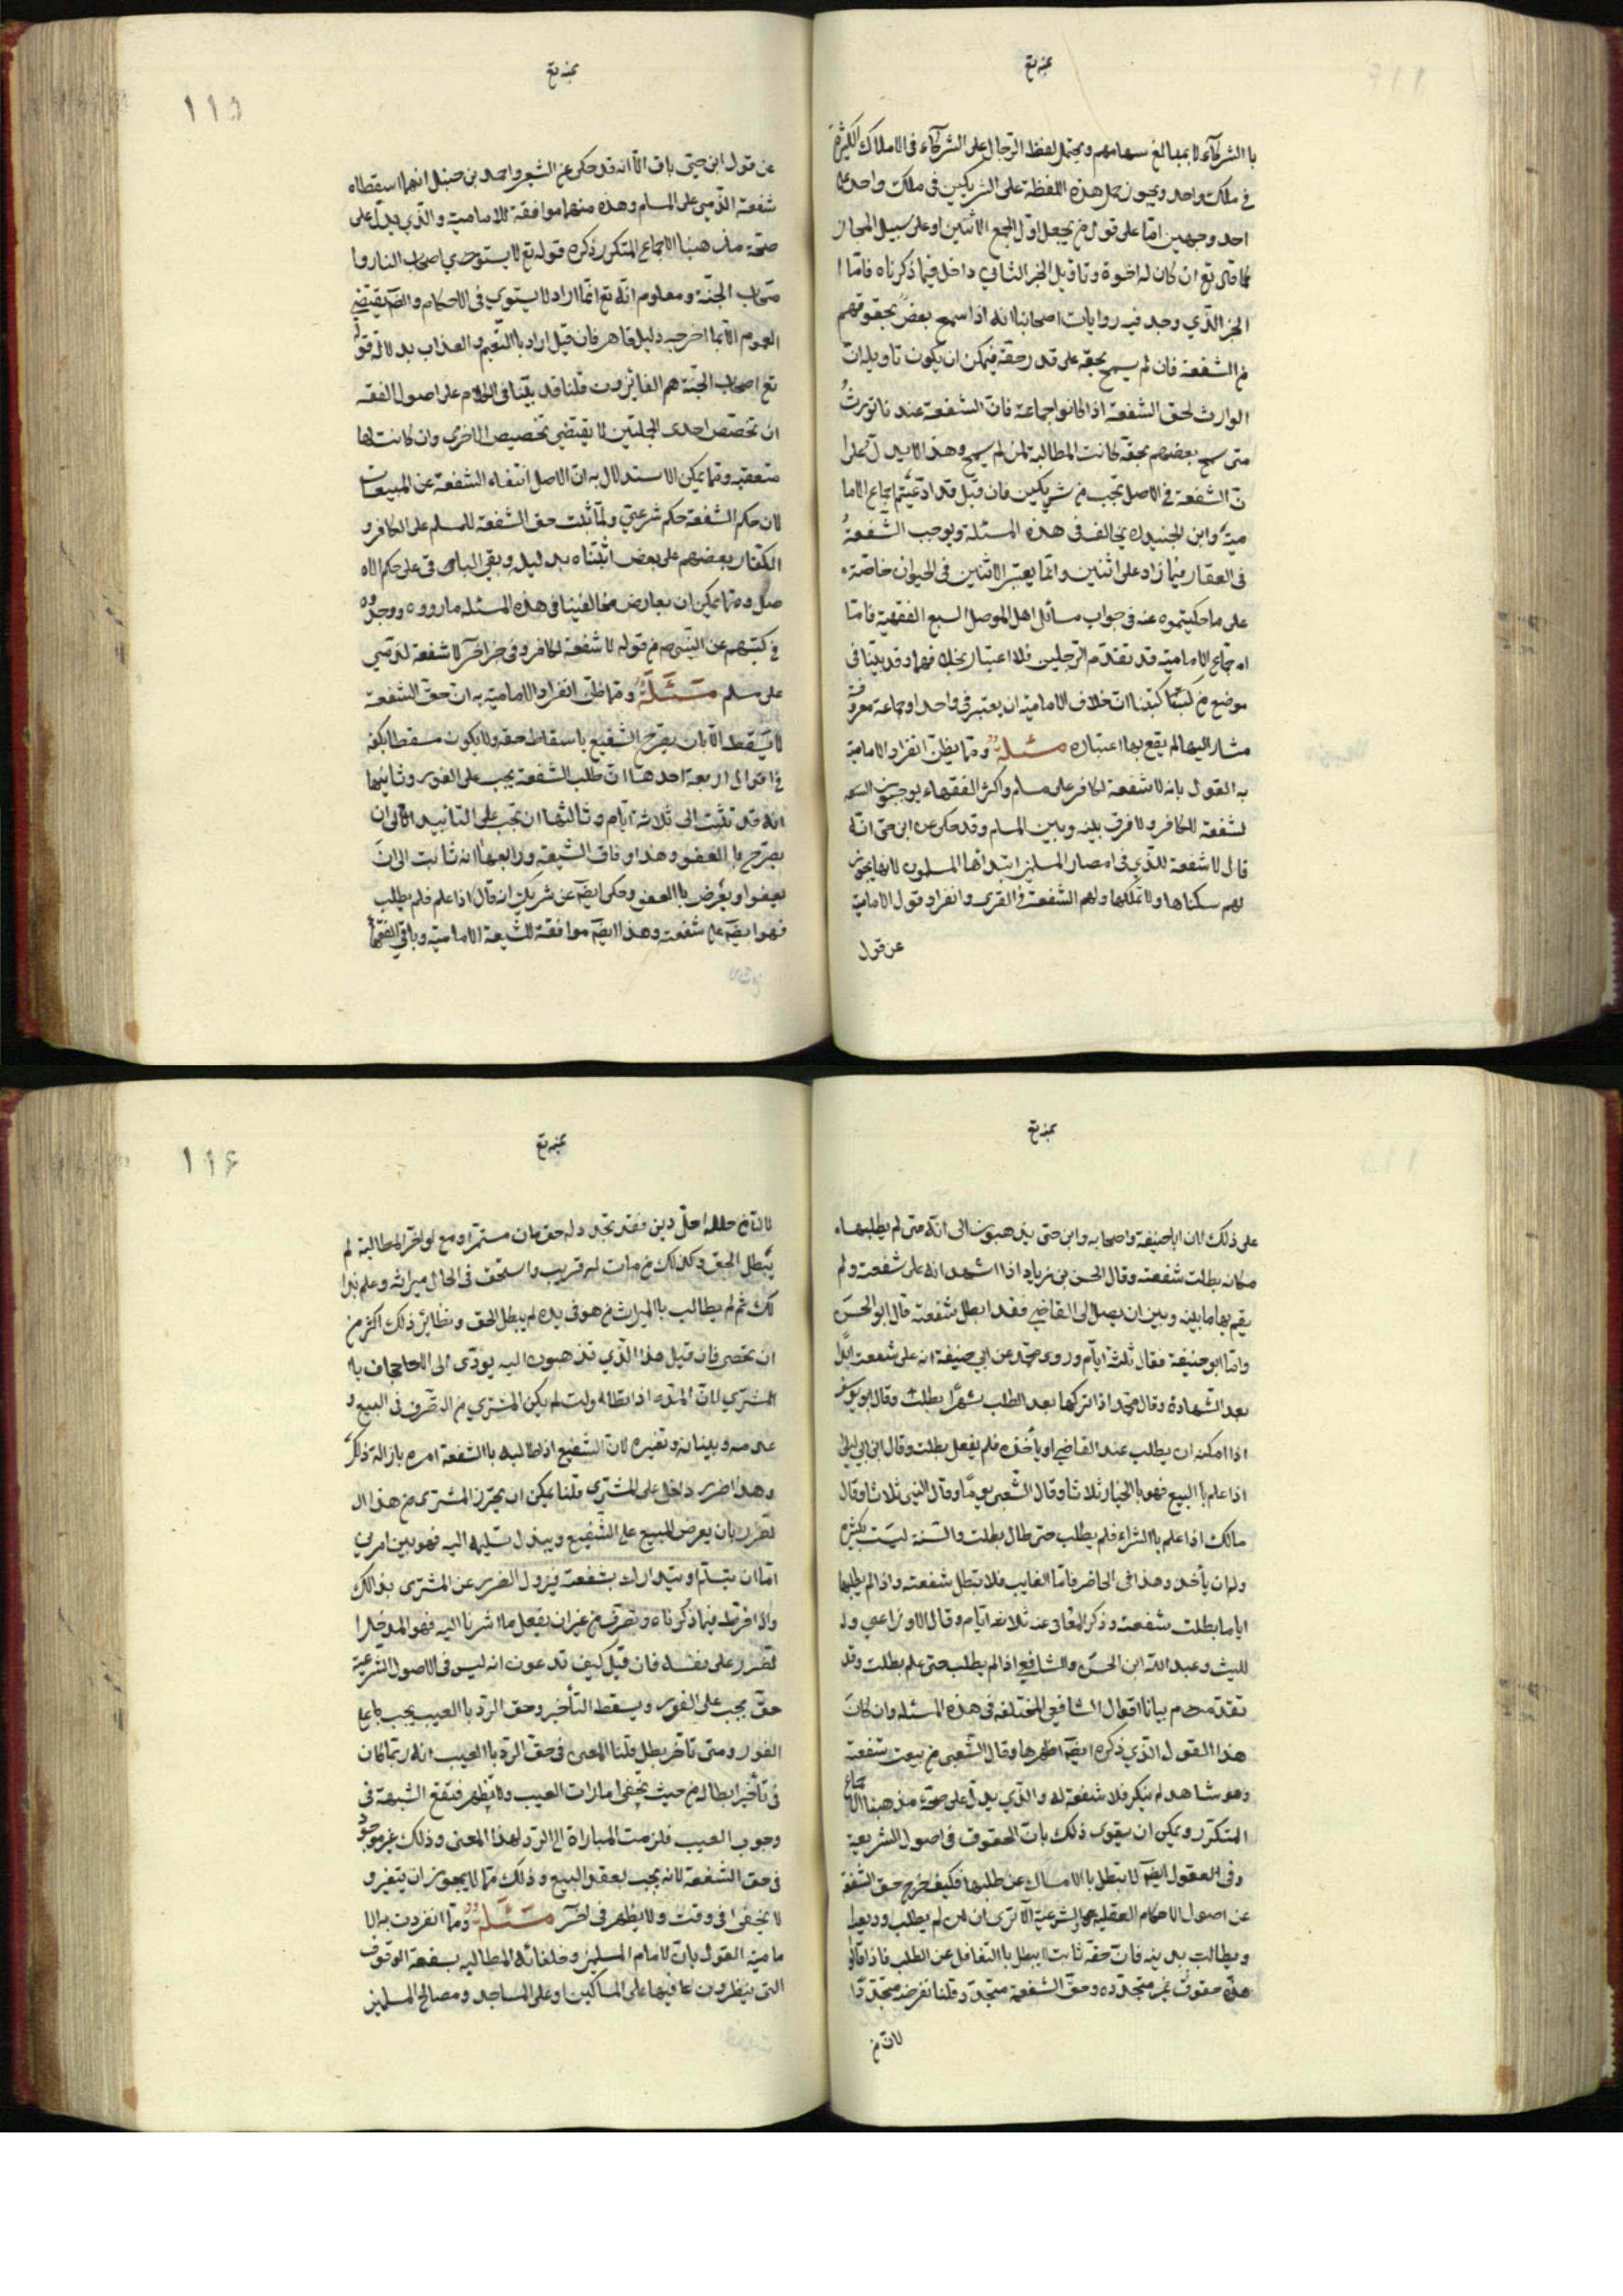 بمنه تع
با الشركاء لا بمبالغ سهامهم ويحتمل لفظ الرجال على الشركاء فى الاملاك الكثيرة
في ملك واحد ويجوز حمل هذه اللفظة على الشريكين فى ملك واحد على
احد وجهين امّا على قول من يجعل اقل الجمع الاثنين او على سبيل المجاز
كما قال تع ان كان له اخوة وتاويل الخبر الثاني داخل فيما ذكرناه فامّا ا
لخبر الذي وجد فيه روايات اصحابنا انه اذا سمح بعض بحقوقهم
من الشفعة فان لم يسمح بحقه على قدر حقه فيمكن ان يكون تاويله ان
الوارث لحق الشفعة اذا كانوا جماعة فان الشفعة عندنا تورث
متى سمح بعضهم بحقه كانت المطالبة لمن لم يسمح وهذا لا يدل على ا
نّ الشفعة في الاصل تجب من شريكين فان قيل قد ادعيتم اجماع الاما
ميه وابن الجنيد يخالف فى هذه المسئلة ويوجب الشفعة
فى العقار فيما زاد على اثنين وانما يعتبر الاثنين فى الحيوان خاصّة
على ما حكيتموه عنه فى جواب مسائل اهل الموصل السبع الفقهية قلنا
اجماع الامامية قد تقدم الرجلين فلا اعتبار بخلافهما وقد بينا فى
موضع من كتبنا ان خلاف الامامية ان يعتبر فى واحد او جماعة معروفة
مشار اليها لم يقع بها اعتباره مسئلة وممّا يظن انفراد الامامية
به القول بانه لا شفعة لكافر على مسلم واكثر الفقهاء يوجبون
لشفعة للكافر ولا فرق بينه وبين المسلم وقد حكى عن ابن حى انّه
قال لا شفعة للذمي فى امصار المسلمين ابتدأها المسلمون لانها يجوز
لهم سكناها ولا تملكها ولهم الشفعة فى القرى وانفراد قول الامامية
عن قول
بمنه تع
١١٥
عن قول ابن حيّ باق الا انه قد حكى عن الشعبى واحمد بن حنبل انهما اسقطا
شفعة الذمى على المسلم وهذه منهما موافقة للامامية والذي يدل على
صحة مذهبنا الاجماع المتكرر ذكره قوله تع لا يستوي اصحاب النار وا
صحاب الجنة ومعلوم انه تع انما اراد لا يستوي فى الاحكام والظ يقتضى
العموم الا ما اخرجه دليل قاهر فان قيل اراد با النعيم والعذاب بدلالة قوله
تع اصحاب الجنة هم الفائزون قلنا قد بيّنا فى الكلام على اصول الفقه
ان تخصيص احدى الجملتين لا يقتضي تخصيص الاخرى وان كانت لها
متعقبه وممّا يمكن الاستدلال به ان الاصل انتفاء الشفعة عن المبيعات
لان حكم الشفعة حكم شرعي ولما ثبت حق الشفعة للمسلم على الكافر و
الكفار بعضهم على بعض اثبتناه بدليل وبقى الباقى على حكم الا
صل وممّا يمكن ان يعارض مخالفينا فى هذه المسئلة ما رووه ووجدوه
فى كتبهم عن النبى ص من قوله لا شفعة لكافر وفى خبر اخر لا شفعة لذمي
على مسلم مسئلة وممّا ظن انفراد الامامية به ان حق الشفعة
لا يسقط الا بان يصرّح الشفيع باسقاط حقه ولا يكون مسقطا بكفه
فى اقوال اربعة احدها ان طلب الشفعة يجب على الفور وثانيها
انه قد تثبت الى ثلاثة ايام وثالثها ان تجب على التابيد الى ان
يصرح با العفو وهذا وفاق الشيعة ورابعها انه ثابت الى ان
يعفوا او يعرض با العفو وحكى ايض عن شريك انه قال اذا علم فلم يطلب
فهو ايض على شفعته وهذا ايض موافقة للشيعة الامامية وباقى الفقهاء
بمنه تع
على ذلك لان ابا حنيفة واصحابه وابن حى يذهبون الى انّه متى لم يطلبها
مكانه بطلت شفعته وقال الحسن بن زياد اذا اشهد انه على شفعته ولم
يقم بها ما بينه وبين ان يصل الى القاضي فقد ابطل شفعته قال ابو الحسن
وامّا ابو حنيفة فقال ثلثة ايّام وروى محمّد عن ابي حنيفة انه على شفعته ابدًا
بعد الشهادة وقال محمّد اذا تركها بعد الطلب شهرًا بطلت وقال ابو يوسف
اذا امكنه ان يطلب عند القاضي او ياخذه فلم يفعل بطلت وقال ابن ابي ليلى
اذا علم با البيع فهو با الخيار ثلاثا وقال الشعبى يومًا وقال البتى ثلاثا وقال
مالك اذا علم با الشراء فلم يطلب حتى طال بطلت والسنة ليست بكثيره
وله ان ياخذ وهذا فى الحاضر فامّا الغايب فلا تبطل شفعته واذا لم يطلبها
اياما بطلت شفعته وذكر المعافى عنه ثلاثة ايام وقال الاوزاعي وا
لليث وعبد الله ابن الحسن والشافعي اذا لم يطلب حتى علم بطلت وقد
تقدم بيانا اقوال الشافعي المختلفة فى هذه المسئلة وان كان
هذا القول الذي ذكره ايض اظهرها وقال الشعبى من بيعت شفعته
وهو شاهد لم ينكر فلا شفعة له والذي يدل على صحة مذهبنا الاجماع
المتكرّر ويمكن ان يقوى ذلك بانّ الحقوق فى اصول الشريعة
وفى العقول ايض لا تبطل با الامساك عن طلبها فكيف خرج حق الشفعة
عن اصول الاحكام العقلية والشرعية الا ترى ان من لم يطلب وديعة
ويطالب بدينه فان حقه ثابت لا يبطل با التغافل عن الطلب فاذا قالوا
هذه حقوق غير متجدده وحق الشفعة متجدد قلنا نفرضه متجددا
لان من
بمنه تع
١١٦
لان من حل له اجل دين فقد تجدد له حق مان مستمر ومع لو اخّر المطالبة لم
يبطل الحق وكذلك من مات له قريب واستحق فى الحال ميراثه وعلم بذا
لك ثم لم يطالب با الميراث من هو فى يده لم يبطل الحق ونظائر ذلك اكثر من
ان تحصى فان قيل هذا الذي تذهبون اليه يؤدّى الى الاجحاف با
المشتري لان المدة اذا تطاولت لم يكن المشتري من التصرف فى البيع و
هدمه وبنيانه وتغيره لان الشفيع اذا طالبه با الشفعة امره بازالة ذلك
وهذا ضرر داخل على المشتري قلنا يمكن ان يحترز المشترى من هذا ال
ضرر بان يعرض المبيع على الشفيع ويبذل تسليمه اليه فهو بين امرين
امّا ان يتسلّم او يتدارك بشفعته فيزول الضرر عن المشترى بذالك
واذا فرّط فيما ذكرناه وتصرف من غير ان يفعل ما اشرنا اليه فهو المدخل ا
لضرر على نفسه فان قيل كيف تدعون انه ليس فى الاصول الشرعية
حقّ يجب على الفور ويسقط التأخير وحق الرد با العيب يجب على
الفور ومتى تأخر بطل قلنا المعنى فى حق الرد با العيب انه ربما كان
فى تأخير ابطاله من حيث تخفى امارات العيب ولا تظهر فتقع الشبهة فى
وجوب العيب فلزمت المباراة الى الرد لهذا المعنى وذلك غير موجود
فى حق الشفعة لانه يجب بعقد البيع وذلك ممّا لا يجوز ان يتغير و
لا يخفى فى وقت ولا يظهر فى اخر مسئلة وممّا انفردت به الا
مامية القول بان لامام المسلمين وخلفائه المطالبه بشفعة الوقوف
التى ينظرون عا فيها على المساكين او على المساجد ومصالح المسلمين